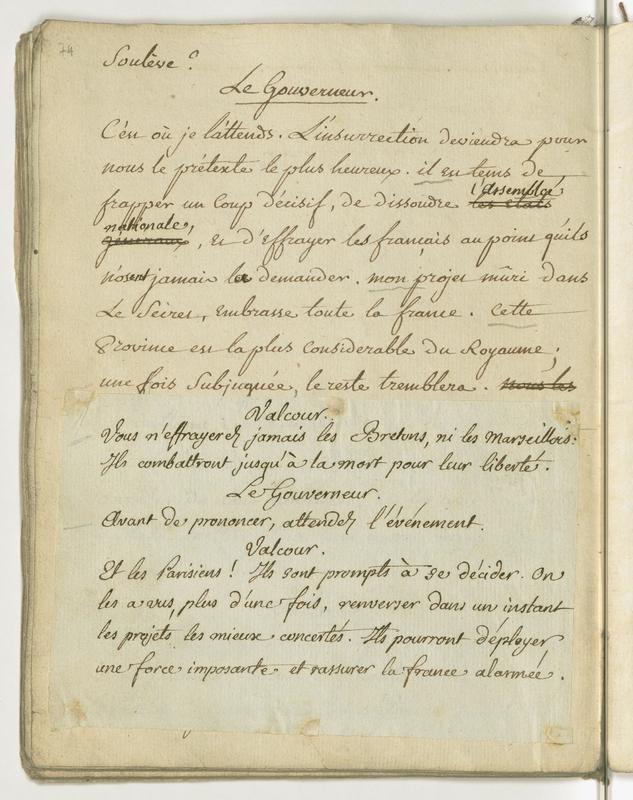 74
Soulève?
Le Gouverneur.
C'est où je l'attends. L'insurrection deviendra pour
nous le prétexte le plus heureux. il est tems de
frapper un Coup décisif, de dissoudre les Etats l'Assemblée
généraux nationale, et d'effrayer les français au point qu'ils
n'osent jamais la demander. mon projet mûri dans
Le Secret, Embrasse toute la france. Cette
Province est la plus Considerable du Royaume;
une fois Subjuguée, le reste tremblera. nous les
Valcour.
Vous n'effrayerez jamais les Bretons, ni les Marseillois:
Ils combattront jusqu'à la mort pour leur liberté.
Le Gouverneur.
Avant de prononcer, attendez l'événement.
Valcour.
Et les Parisiens! Ils sont prompts à se décider. On
les a vus, plus d'une fois, renverser dans un instant
les projets les mieux concertés. Ils pourront déployer
une force imposante et rassurer la france alarmée.